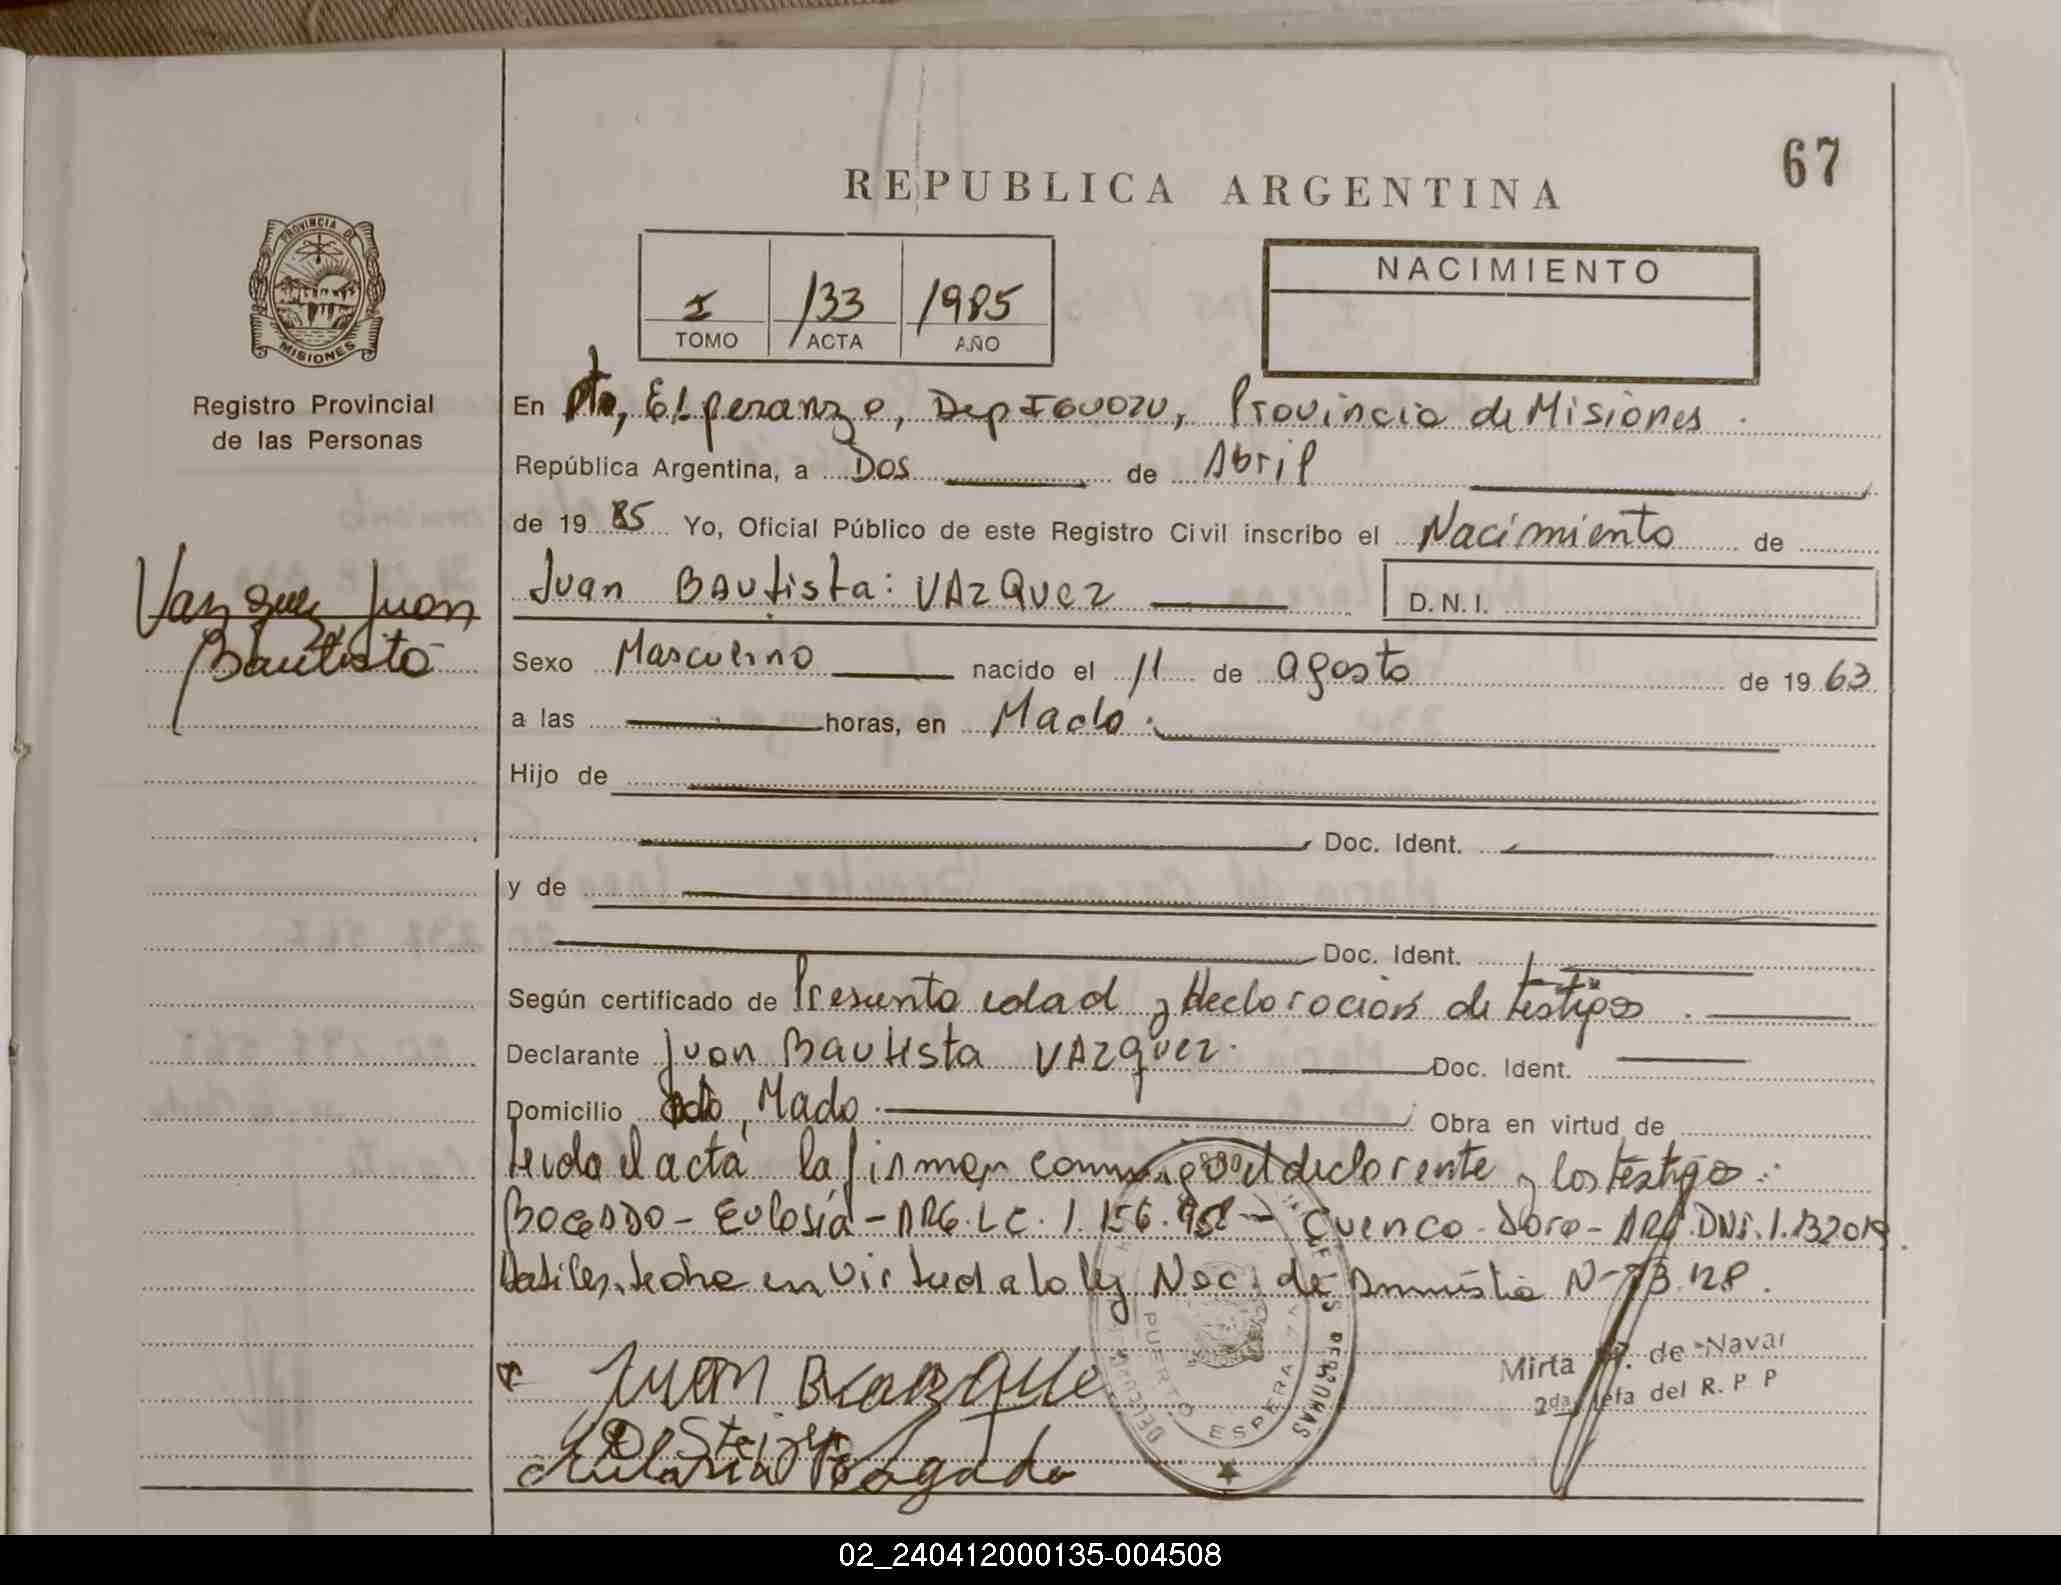 67
REPUBLICA ARGENTINA
PROVINCIA DE
MISIONES
Registro Provincial
de las Personas
I 133 1985
TOMO ACTA AÑO
NACIMIENTO
En Pto, Esperanza, Dep Iguazu, Provincia de Misiones.
República Argentina, a Dos de Abril
de 1985 Yo, Oficial Público de este Registro Civil inscribo el Nacimiento de
Juan Bautista: VAzQuez D.N.I.
Vazquez, Juan
Bautista
Sexo Masculino nacido el 11 de agosto de 1963
a las horas, en Mado.
Hijo de
Doc. Ident.
y de
Doc. Ident.
Según certificado de Presunta edad y declaracion de testigos.
Declarante Juan Bautista VAzquez. Doc. Ident.
Domicilio Mado. Obra en virtud de
Leida el acta la firman conmigo el declarante y los testigos:
Eulosia - ARG. L C. 1.156. - Cuenca - ARG. DNI. 1.132019.
en virtud a la ley Nac. de Amnistia N-
Juan
Mirta de Navar
2da Jefa del R. P P
PUERTO ESPERANZA
02_240412000135-004508